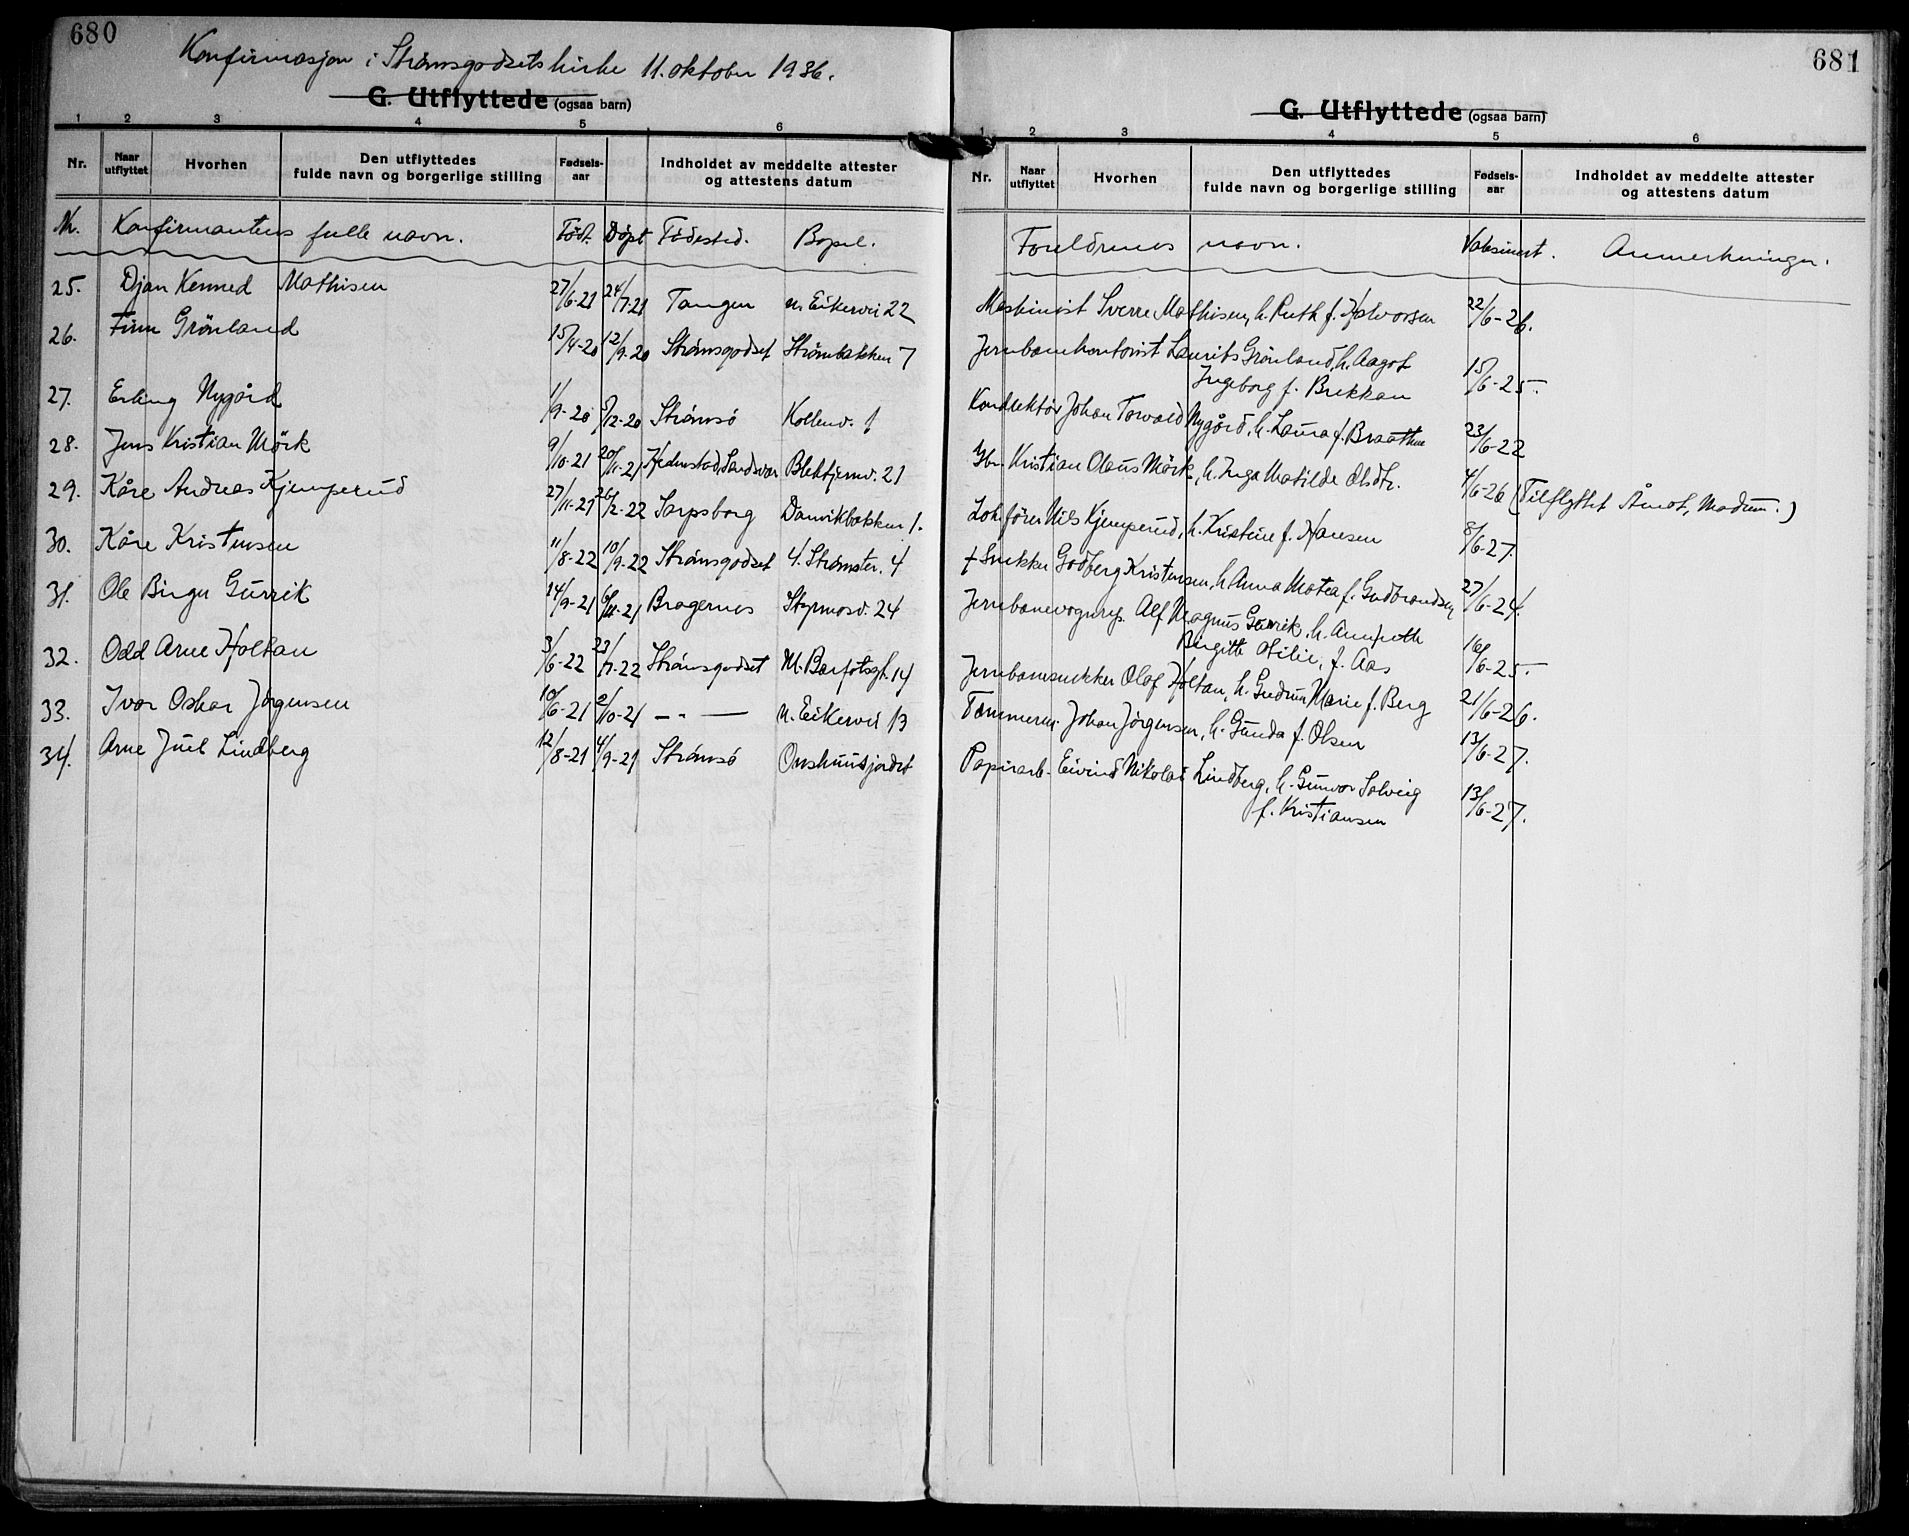 680
Konfirmasjon i Strømsgodsets kirke 11. oktober 1936.
G. Utflyttede (ogsaa barn)
1 2 3 4 5 6
Nr. Naar utflyttet Hvorhen Den utflyttedes fulde navn og borgerlige stilling Fødsels-aar Indholdet av meddelte attester og attestens datum
Nr. Konfirmantens fulle navn. Född. Döpt Födested. Bopel.
25. Djan Kenned Mathisen 27/6-21 24/7-21 Tangen n. Eikervei 22
26. Finn Grönland 15/4-20 12/9-20 Strömsgodset Strømbakken 7
27. Erling Nygård 1/9-20 5/12-20 Strömsö Kollenv. 1
28. Jens Kristian Mörk 9/10-21 20/11-21 Hedenstad, Sandsvær Blektjernv. 21
29. Kåre Andreas Kjemperud 27/11-21 26/2-22 Sarpsborg Danvikbakken 1.
30. Kåre Kristensen 11/8-22 10/9-22 Strömsgodset 4. Strømster. 4
31. Ole Birger Gurrik 14/9-21 6/11-21 Bragernes Styrmosv. 24
32. Odd Arne Holtan 3/6-22 23/7-22 Strömsgodset M. Barfotsgt. 14
33. Ivar Oskar Jörgensen 10/6-21 2/10-21 — " — n. Eikervei 13
34. Arne Juel Lindberg 12/8-21 4/9-21 Strömsö Onshuusjordet
681
G. Utflyttede (ogsaa barn)
1 2 3 4 5 6
Nr. Naar utflyttet Hvorhen Den utflyttedes fulde navn og borgerlige stilling Fødsels-aar Indholdet av meddelte attester og attestens datum
Foreldrenes navn. Vaksinert. Anmerkninger.
Maskinist Sverre Mathisen, h. Ruth f. Halvorsen 22/6-26.
Jernbanekontorist Laurits Grönland, h. Aagot
Ingeborg f. Brekkan 15/6-25.
Konduktör Johan Torvald Nygård, h. Laura f. Braathen 23/6-22
Gbr. Kristian Olaus Mörk, h. Inga Matilde Olsdtr. 4/6-26 (Tilflyttet Åmot, Modum.)
Lok.förer Nils Kjemperud, h. Kristine f. Hansen 8/6-27
† Snekker Godberg Kristensen, h. Anna Matea f. Gudbrandsen 27/6-24.
Jernbanevognrep. Alf Magnus Gurrik, h. Annfrith
Birgitte Otilie, f. Aas 16/6-25
Jernbanesnekker Olaf Holtan, h. Gudrun Marie f. Berg 21/6-26.
Tømmerm. Johan Jörgensen, h. Gunda f. Olsen 13/6-27.
Papirarb. Eivind Nikolai Lindberg, h. Gunvor Solveig
f. Kristiansen 13/6-27.